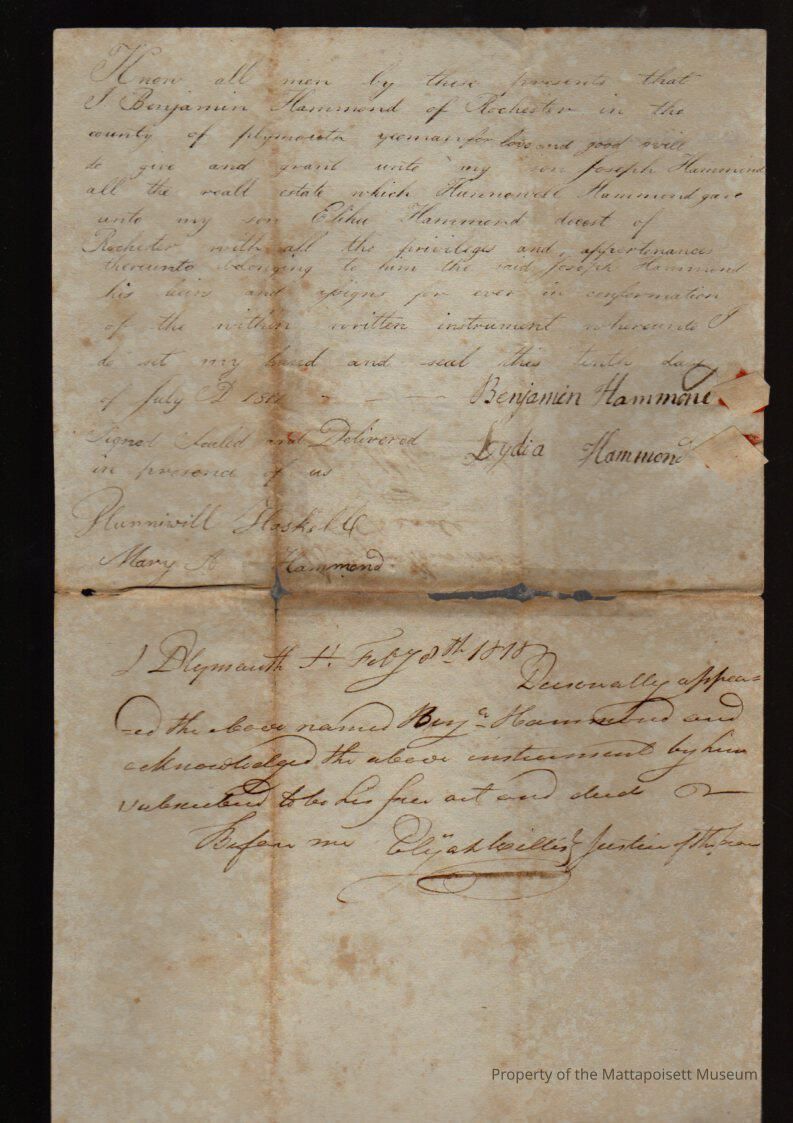 Know all men by these presents that
I Benjamin Hammond of Rochester in the
county of plymouth yeoman for love and good will
do give and grant unto my son Joseph Hammond
all the reall estate which Hunnewell Hammond gave
unto my son Elihu Hammond decest of
Rochester with all the privileges and appertenances
thereunto belonging to him the said Joseph Hammond
his heirs and assigns for ever in conformation
of the within written instrument whereunto I
do set my hand and seal this tenth day
of July Benjamin Hammond
Signed Sealed and Delivered Lydia Hammond
in presence of us
Hunniwill Haskell
Mary A Hammond
Plymouth Feby 8th 1818
Personally appear=
=ed the above named Benja Hammond and
acknowledged the above instrument by him
subscribed to be his free act and deed
Before me Elijah Willis Justice of the Peace
Property of the Mattapoisett Museum